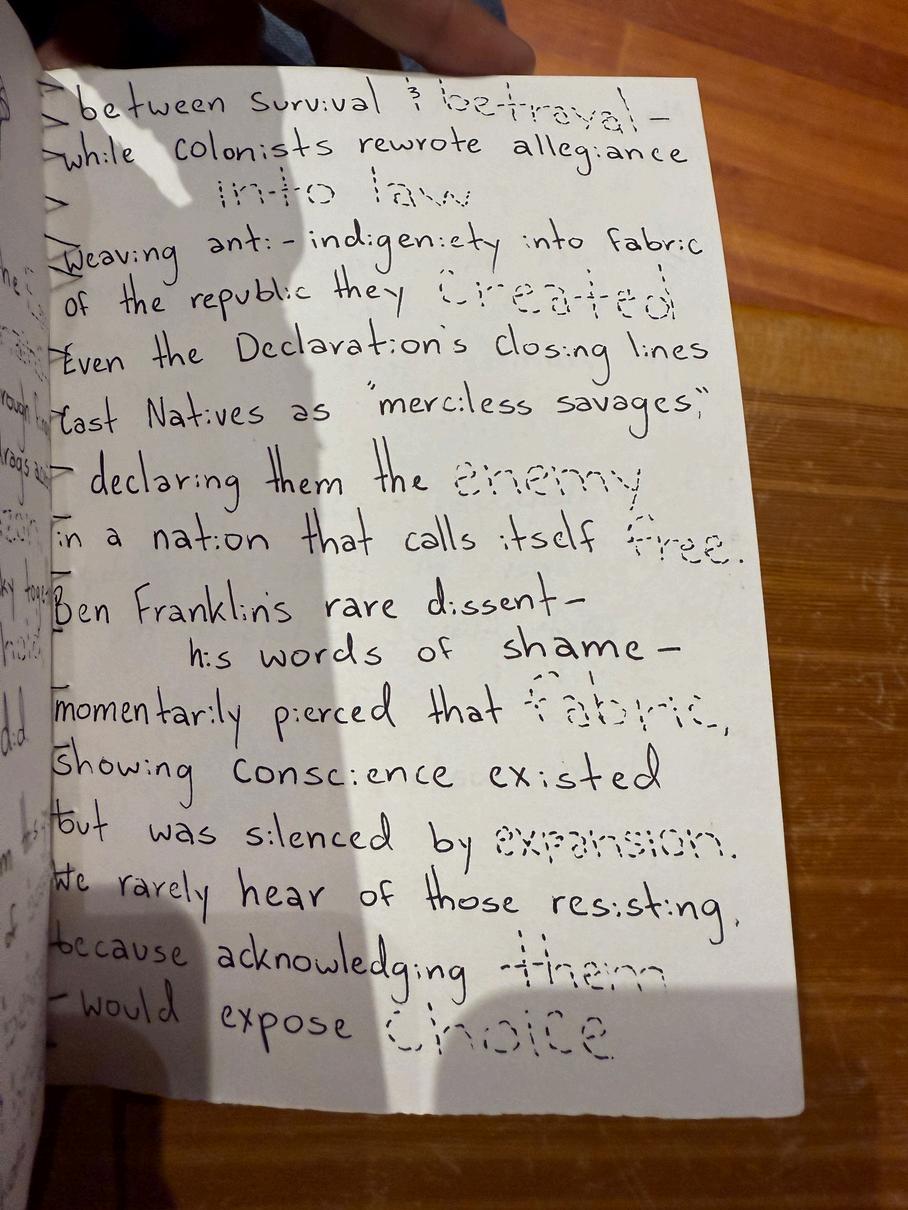 between survival & betrayal –
while colonists rewrote allegiance
into law
Weaving anti-indigeniety into fabric
of the republic they created
Even the Declaration's closing lines
cast Natives as "merciless savages,"
– declaring them the enemy
in a nation that calls itself free.
Ben Franklin's rare dissent –
his words of shame –
momentarily pierced that fabric,
showing conscience existed
but was silenced by expansion.
We rarely hear of those resisting,
because acknowledging them
– would expose choice